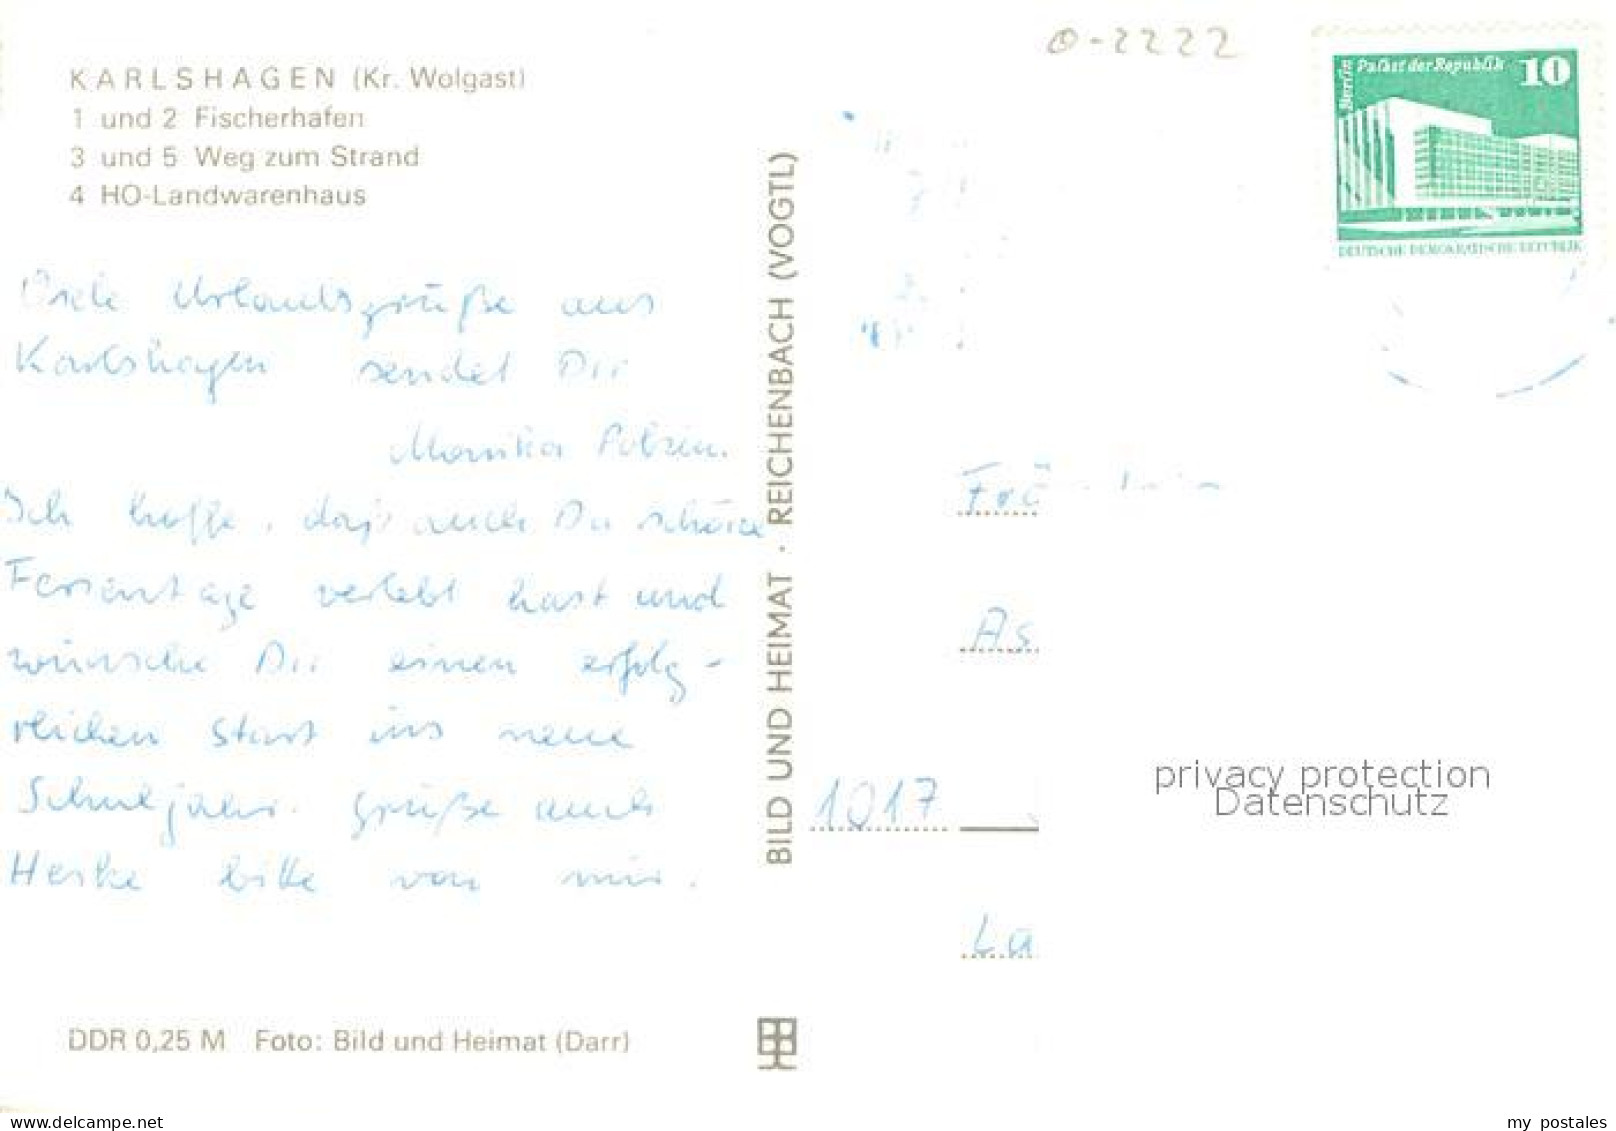 KARLSHAGEN (Kr. Wolgast)
1 und 2 Fischerhafen
3 und 5 Weg zum Strand
4 HO-Landwarenhaus
Viele Urlaubsgrüße aus
Karlshagen sendet Dir
Monika
Ich hoffe, daß auch Du schöne
Ferientage verlebt hast und
wünsche Dir einen erfolg-
reichen Start ins neue
Schuljahr. Grüße auch
Heike bitte von mir.
DDR 0,25 M Foto: Bild und Heimat (Darr)
BILD UND HEIMAT · REICHENBACH (VOGTL)
0-2222
Berlin
Palast der Republik 10
DEUTSCHE DEMOKRATISCHE REPUBLIK
As
1017
privacy protection
Datenschutz
delcampe.net
my_postales